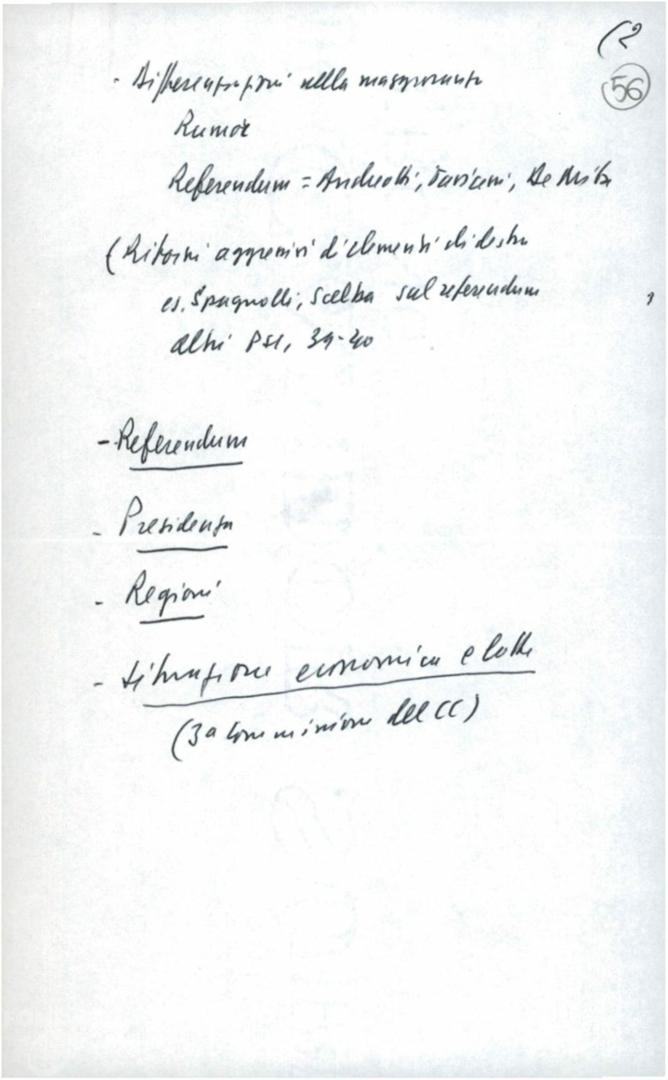 (2
56
- Differenziazioni nella maggioranza
Rumor
Referendum = Andreotti, Taviani, De Mita
(Ritorni aggressivi d'elementi di destra
es. Spagnolli, Scelba sul referendum
altri PSI, 39-40
- Referendum
- Presidenza
- Regioni
- Situazione economica e lotte
(3a Commissione del CC)